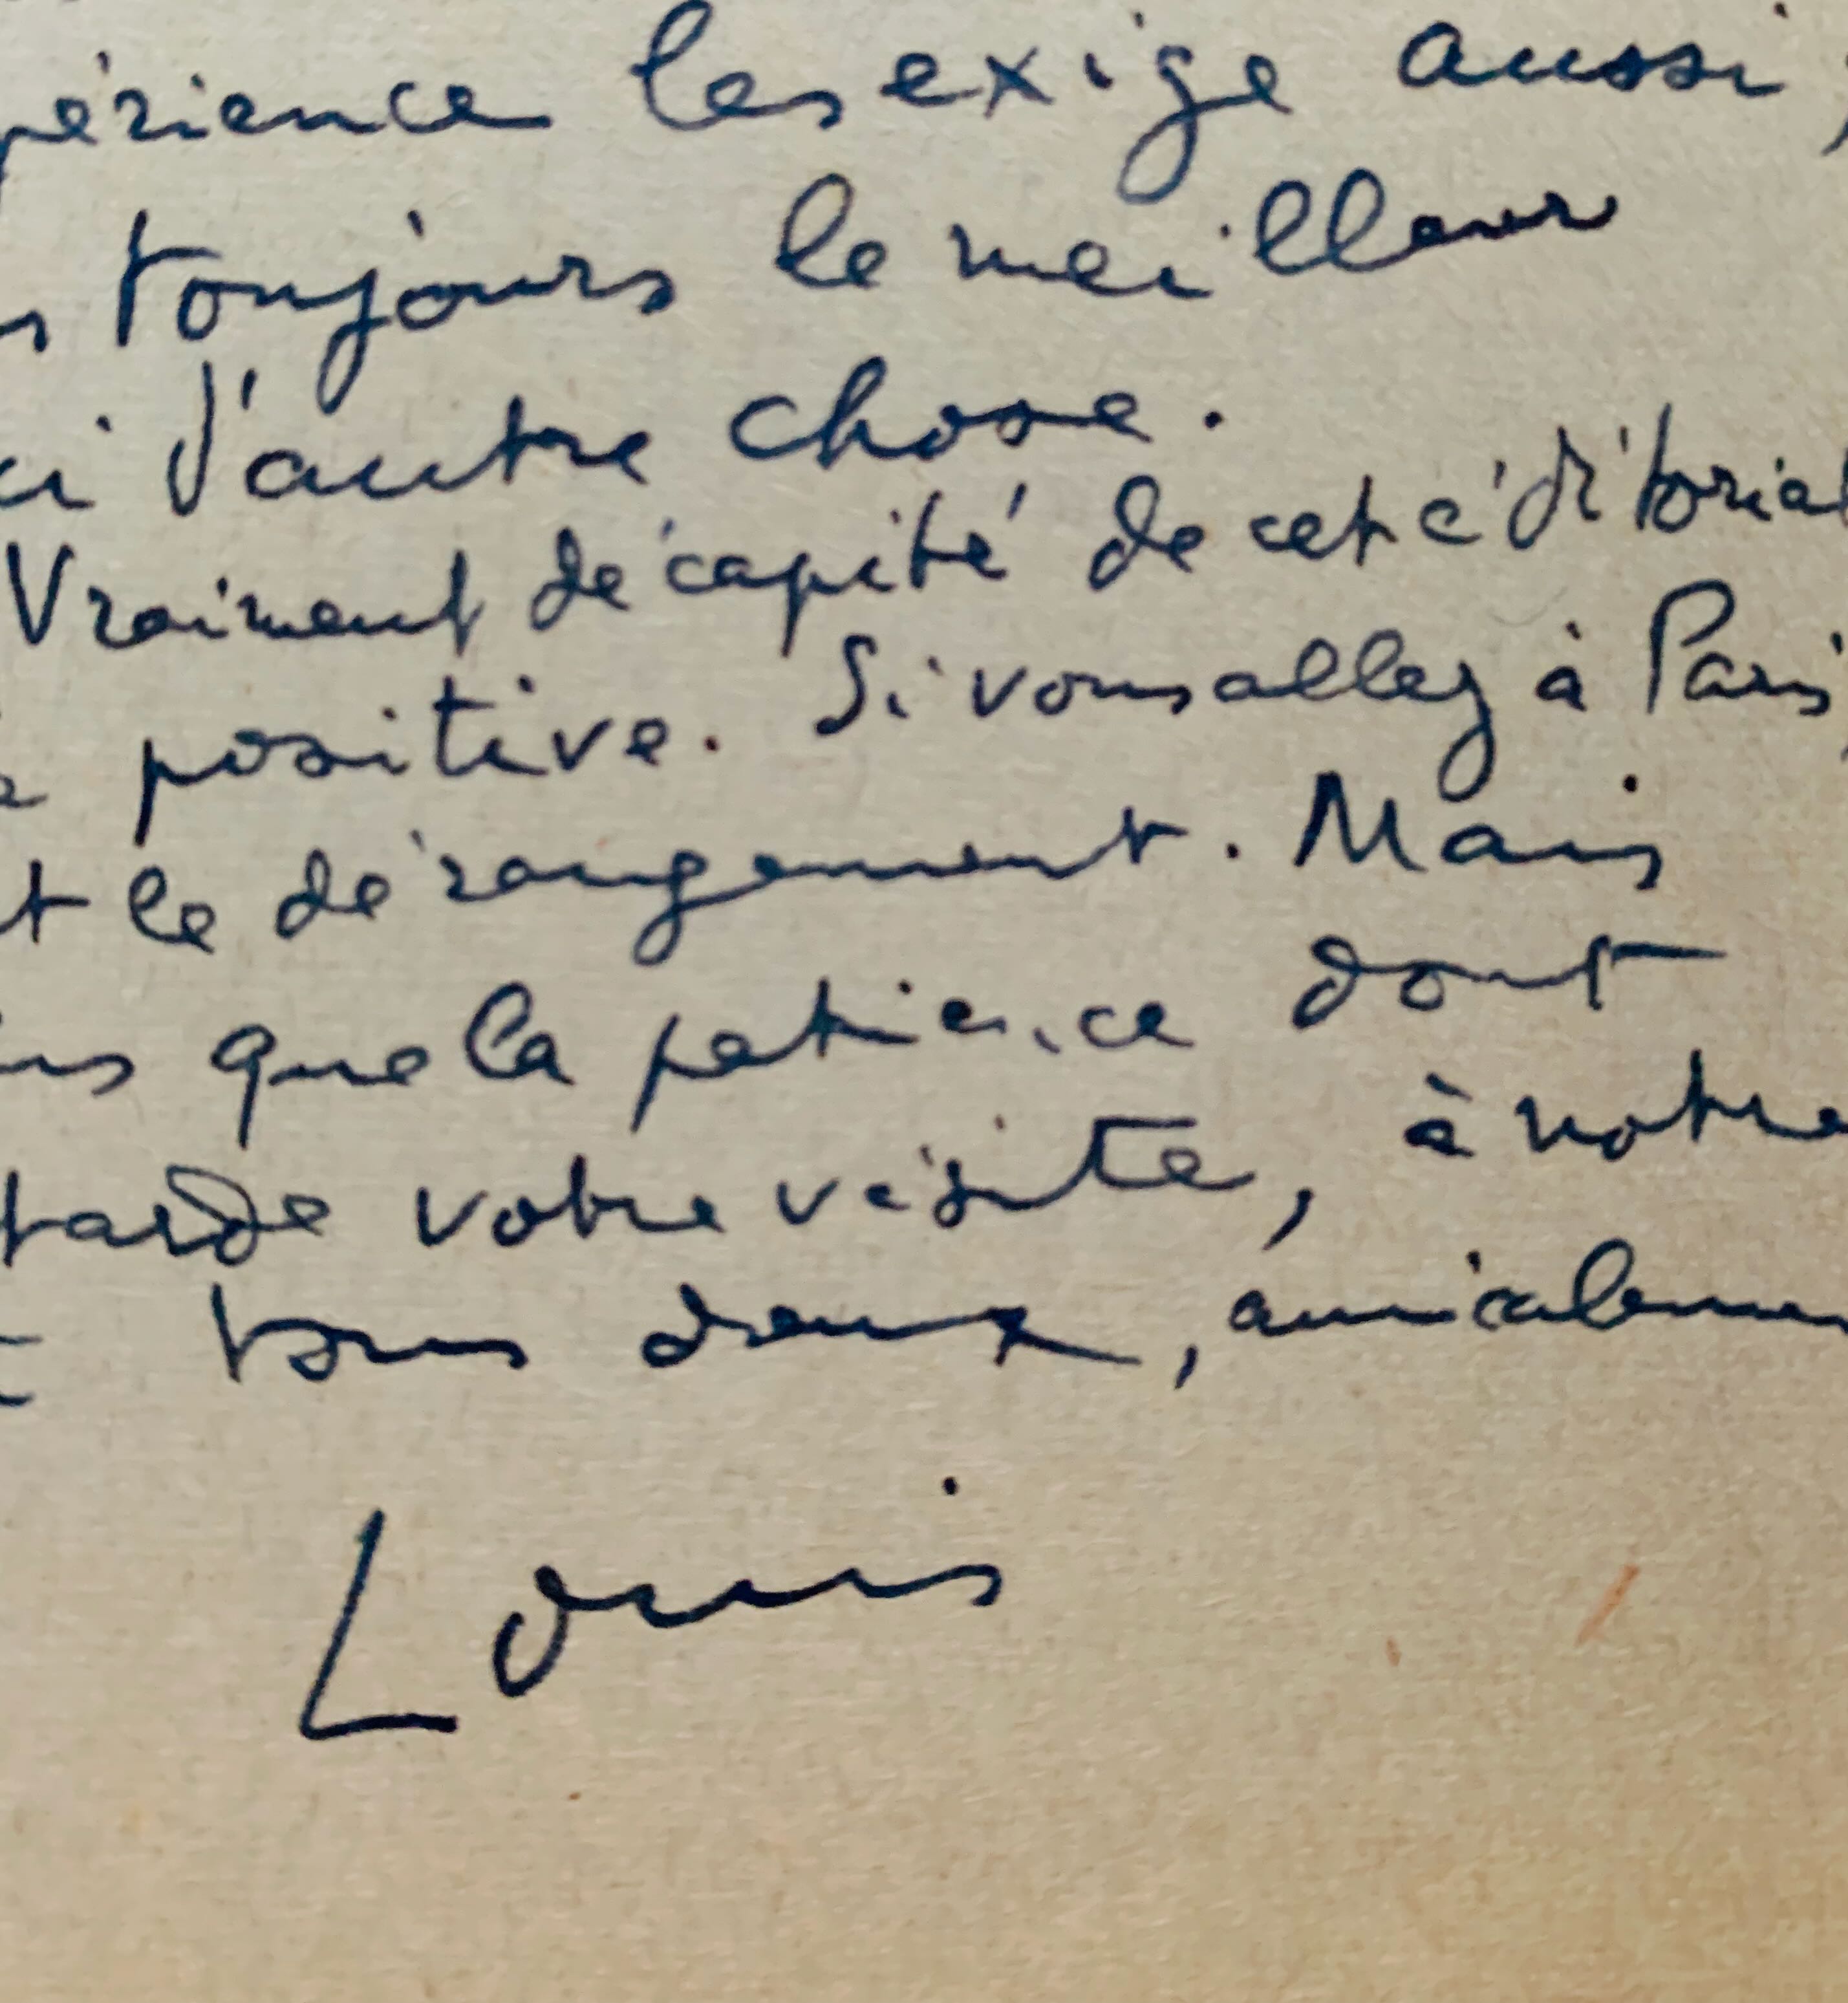 périence les exige aussi,
s toujours le meilleur
ci d'autre chose.
Vraiment décapité de cet éditorial
positive. Si vous allez à Paris,
t le dérangement. Mais
que la patience dont
tarde votre visite, à notre
tous deux, amicalemen
Louis